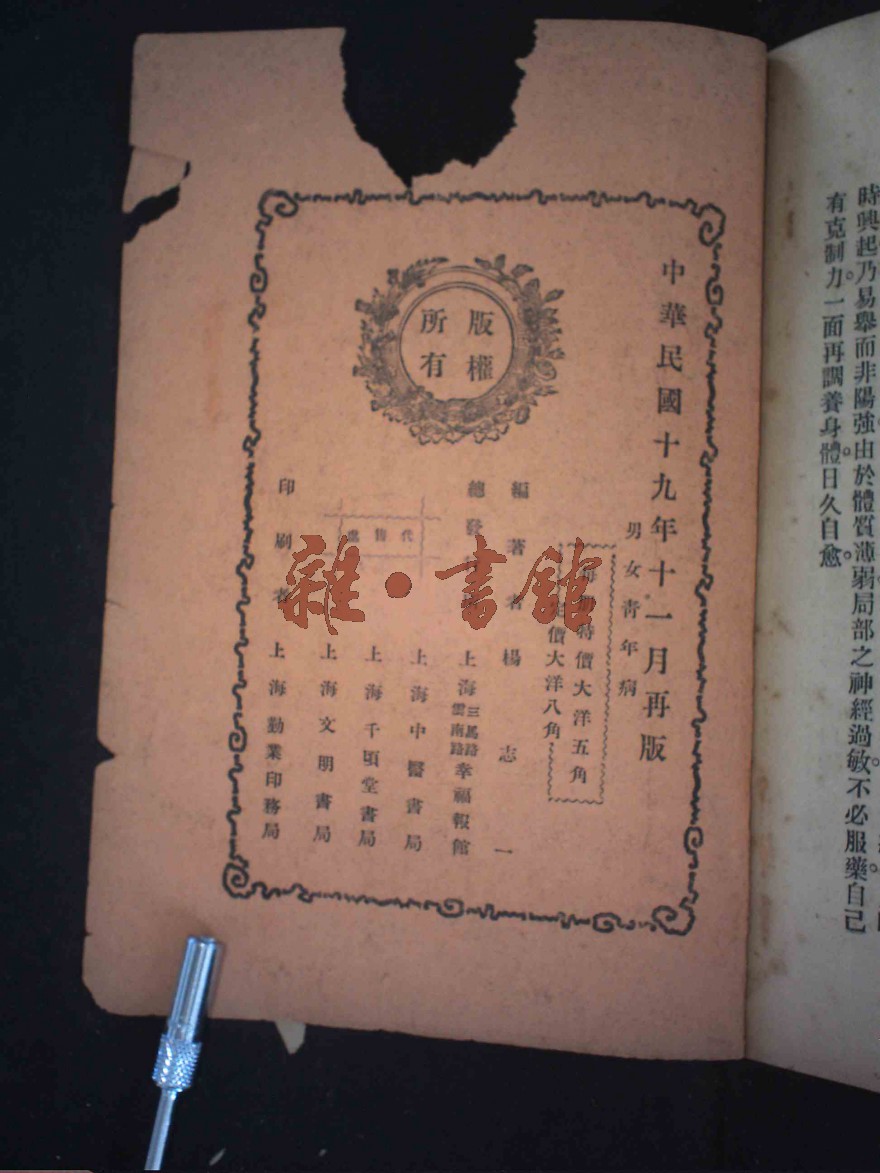 時興起乃易舉而非陽強。由於體質薄弱。局部之神經過敏。不必服藥。自己
有克制力。一面再調養身體。日久自愈。
中華民國十九年十一月再版
男女青年病
特價大洋五角
價大洋八角
版權
所有
編著者 楊志一
總發 上海三馬路雲南路幸福報館
代售處
上海中醫書局
上海千頃堂書局
上海文明書局
印刷者 上海勤業印務局
雜·書館